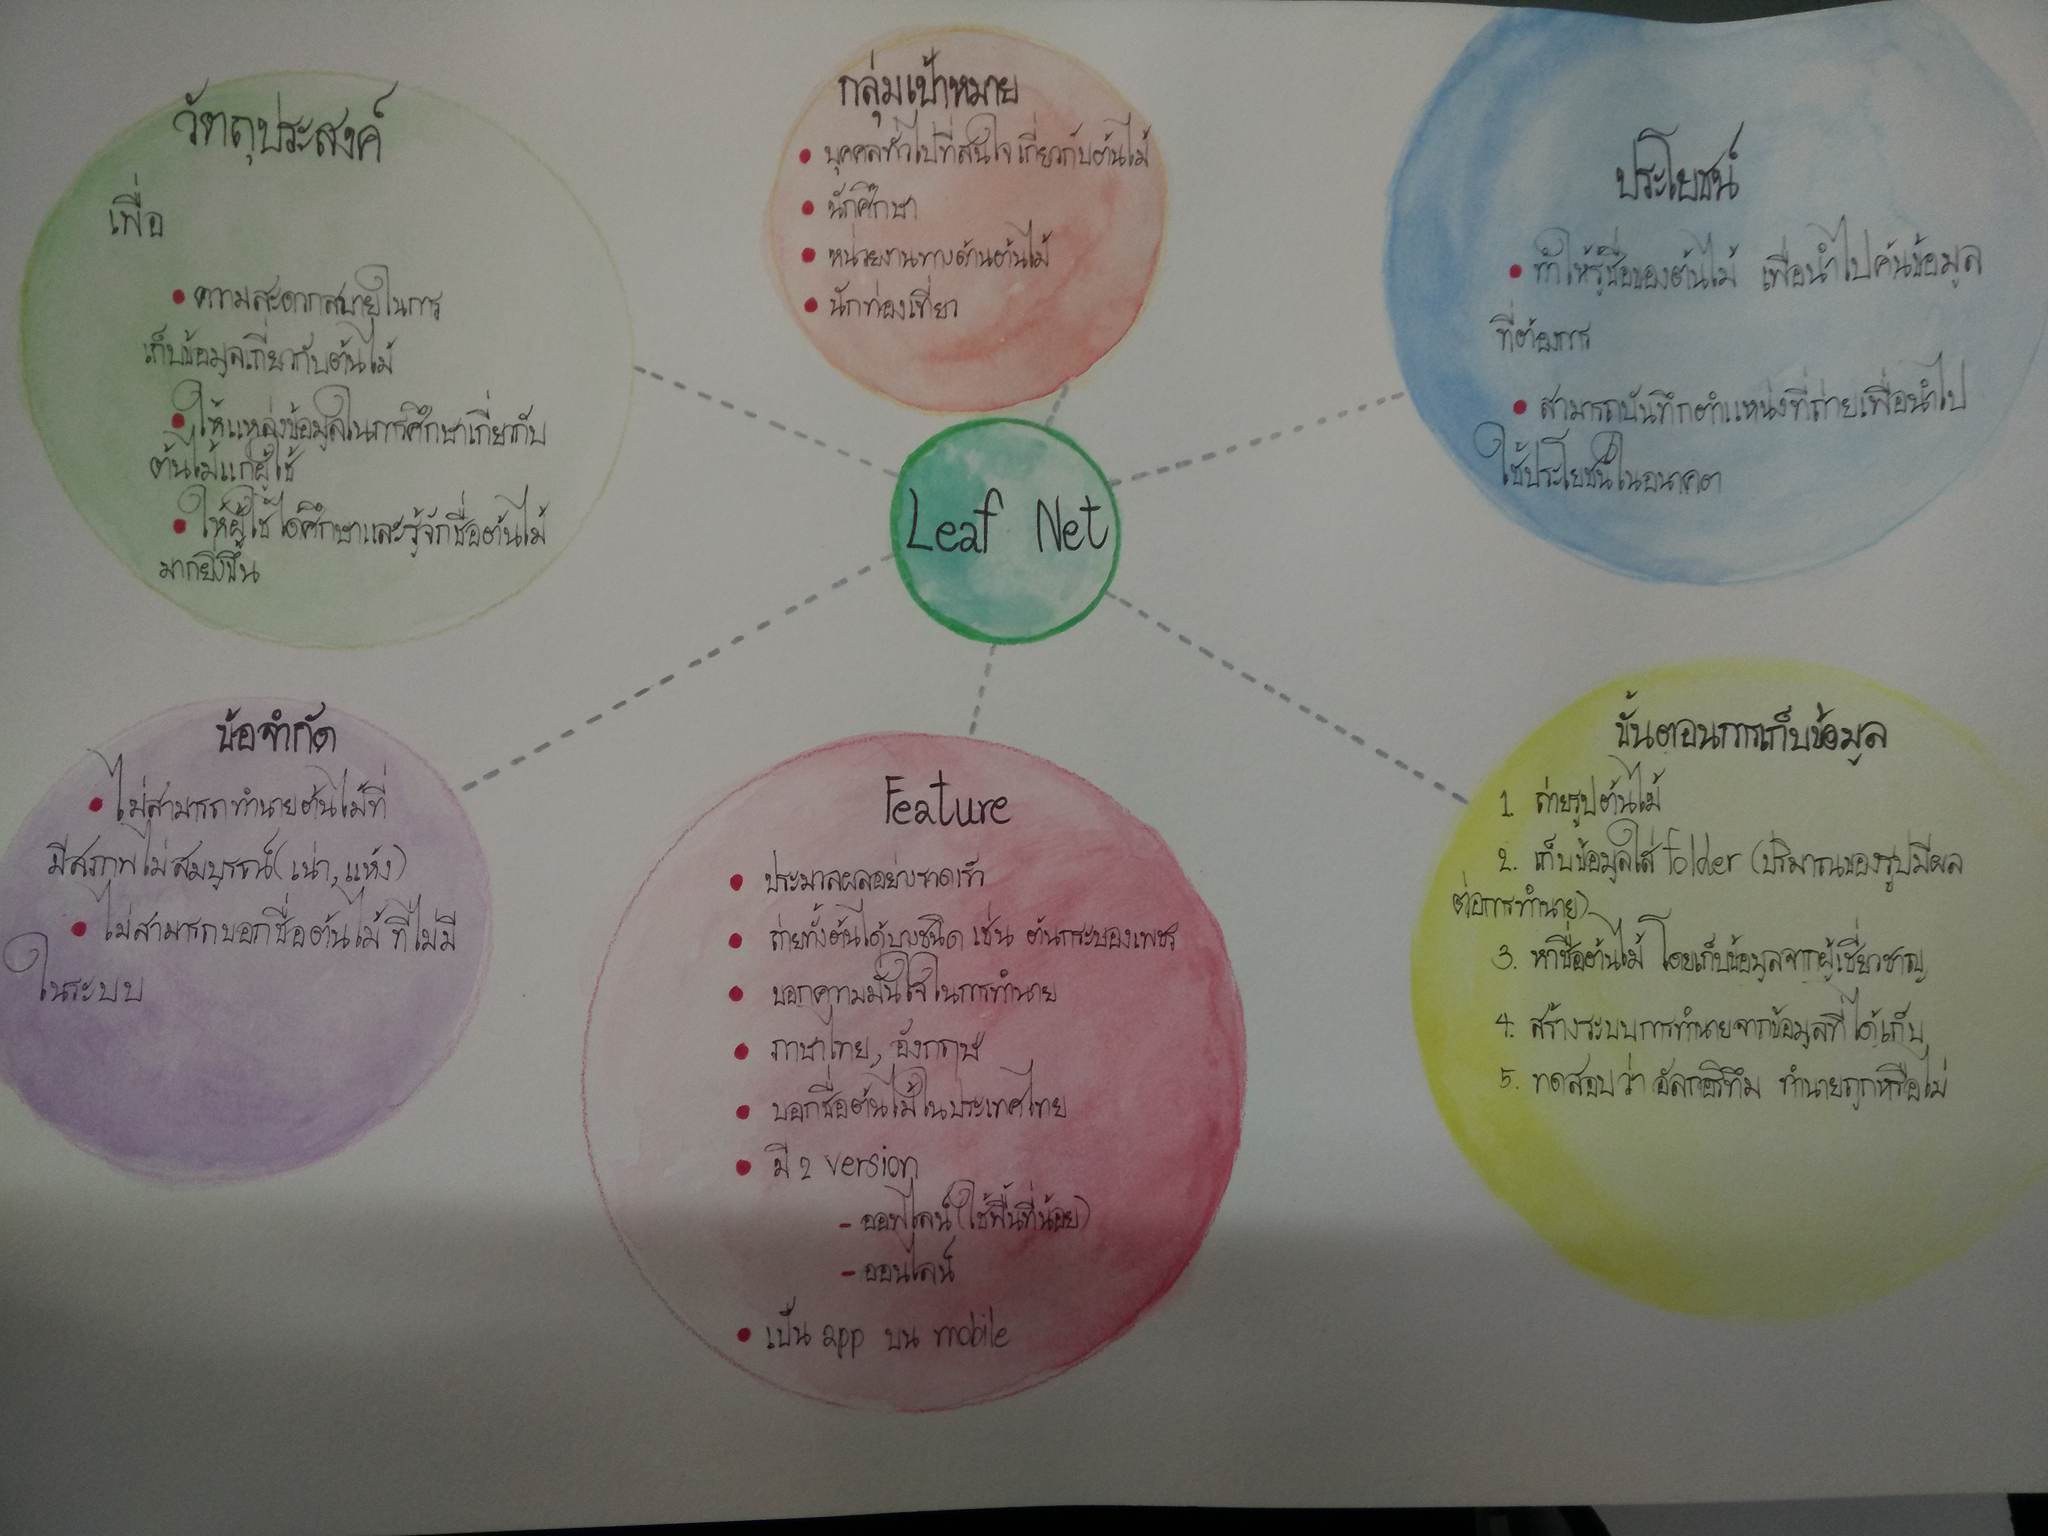 วัตถุประสงค์
เพื่อ
ความสะดวกสบายในการ
เก็บข้อมูลเกี่ยวกับต้นไม้
ให้แหล่งข้อมูลในการศึกษาเกี่ยวกับ
ต้นไม้แก่ผู้ใช้
ให้ผู้ใช้ได้ศึกษาและรู้จักชื่อต้นไม้
มากยิ่งขึ้น
กลุ่มเป้าหมาย
บุคคลทั่วไปที่สนใจเกี่ยวกับต้นไม้
นักศึกษา
หน่วยงานทางด้านต้นไม้
นักท่องเที่ยว
ประโยชน์
ทำให้รู้ชื่อของต้นไม้ เพื่อนำไปค้นข้อมูล
ที่ต้องการ
สามารถบันทึกตำแหน่งที่ถ่ายเพื่อนำไป
ใช้ประโยชน์ในอนาคต
Leaf Net
ข้อจำกัด
ไม่สามารถทำนายต้นไม้ที่
มีสภาพไม่สมบูรณ์(เน่า,แห้ง)
ไม่สามารถบอกชื่อต้นไม้ที่ไม่มี
ในระบบ
Feature
ประมาลผลอย่างรวดเร็ว
ถ่ายทั้งต้นได้บางชนิด เช่น ต้นกระบองเพชร
บอกความมั่นใจในการทำนาย
ภาษาไทย, อังกฤษ
บอกชื่อต้นไม้ในประเทศไทย
มี 2 version
- ออฟไลน์(ใช้พื้นที่น้อย)
- ออนไลน์
เป็น app บน mobile
ขั้นตอนการเก็บข้อมูล
1. ถ่ายรูปต้นไม้
2. เก็บข้อมูลใส่ folder (ปริมาณของรูปมีผล
ต่อการทำนาย)
3. หาชื่อต้นไม้ โดยเก็บข้อมูลจากผู้เชี่ยวชาญ
4. สร้างระบบการทำนายจากข้อมูลที่ได้เก็บ
5. ทดสอบว่า อัลกอริทึม ทำนายถูกหรือไม่